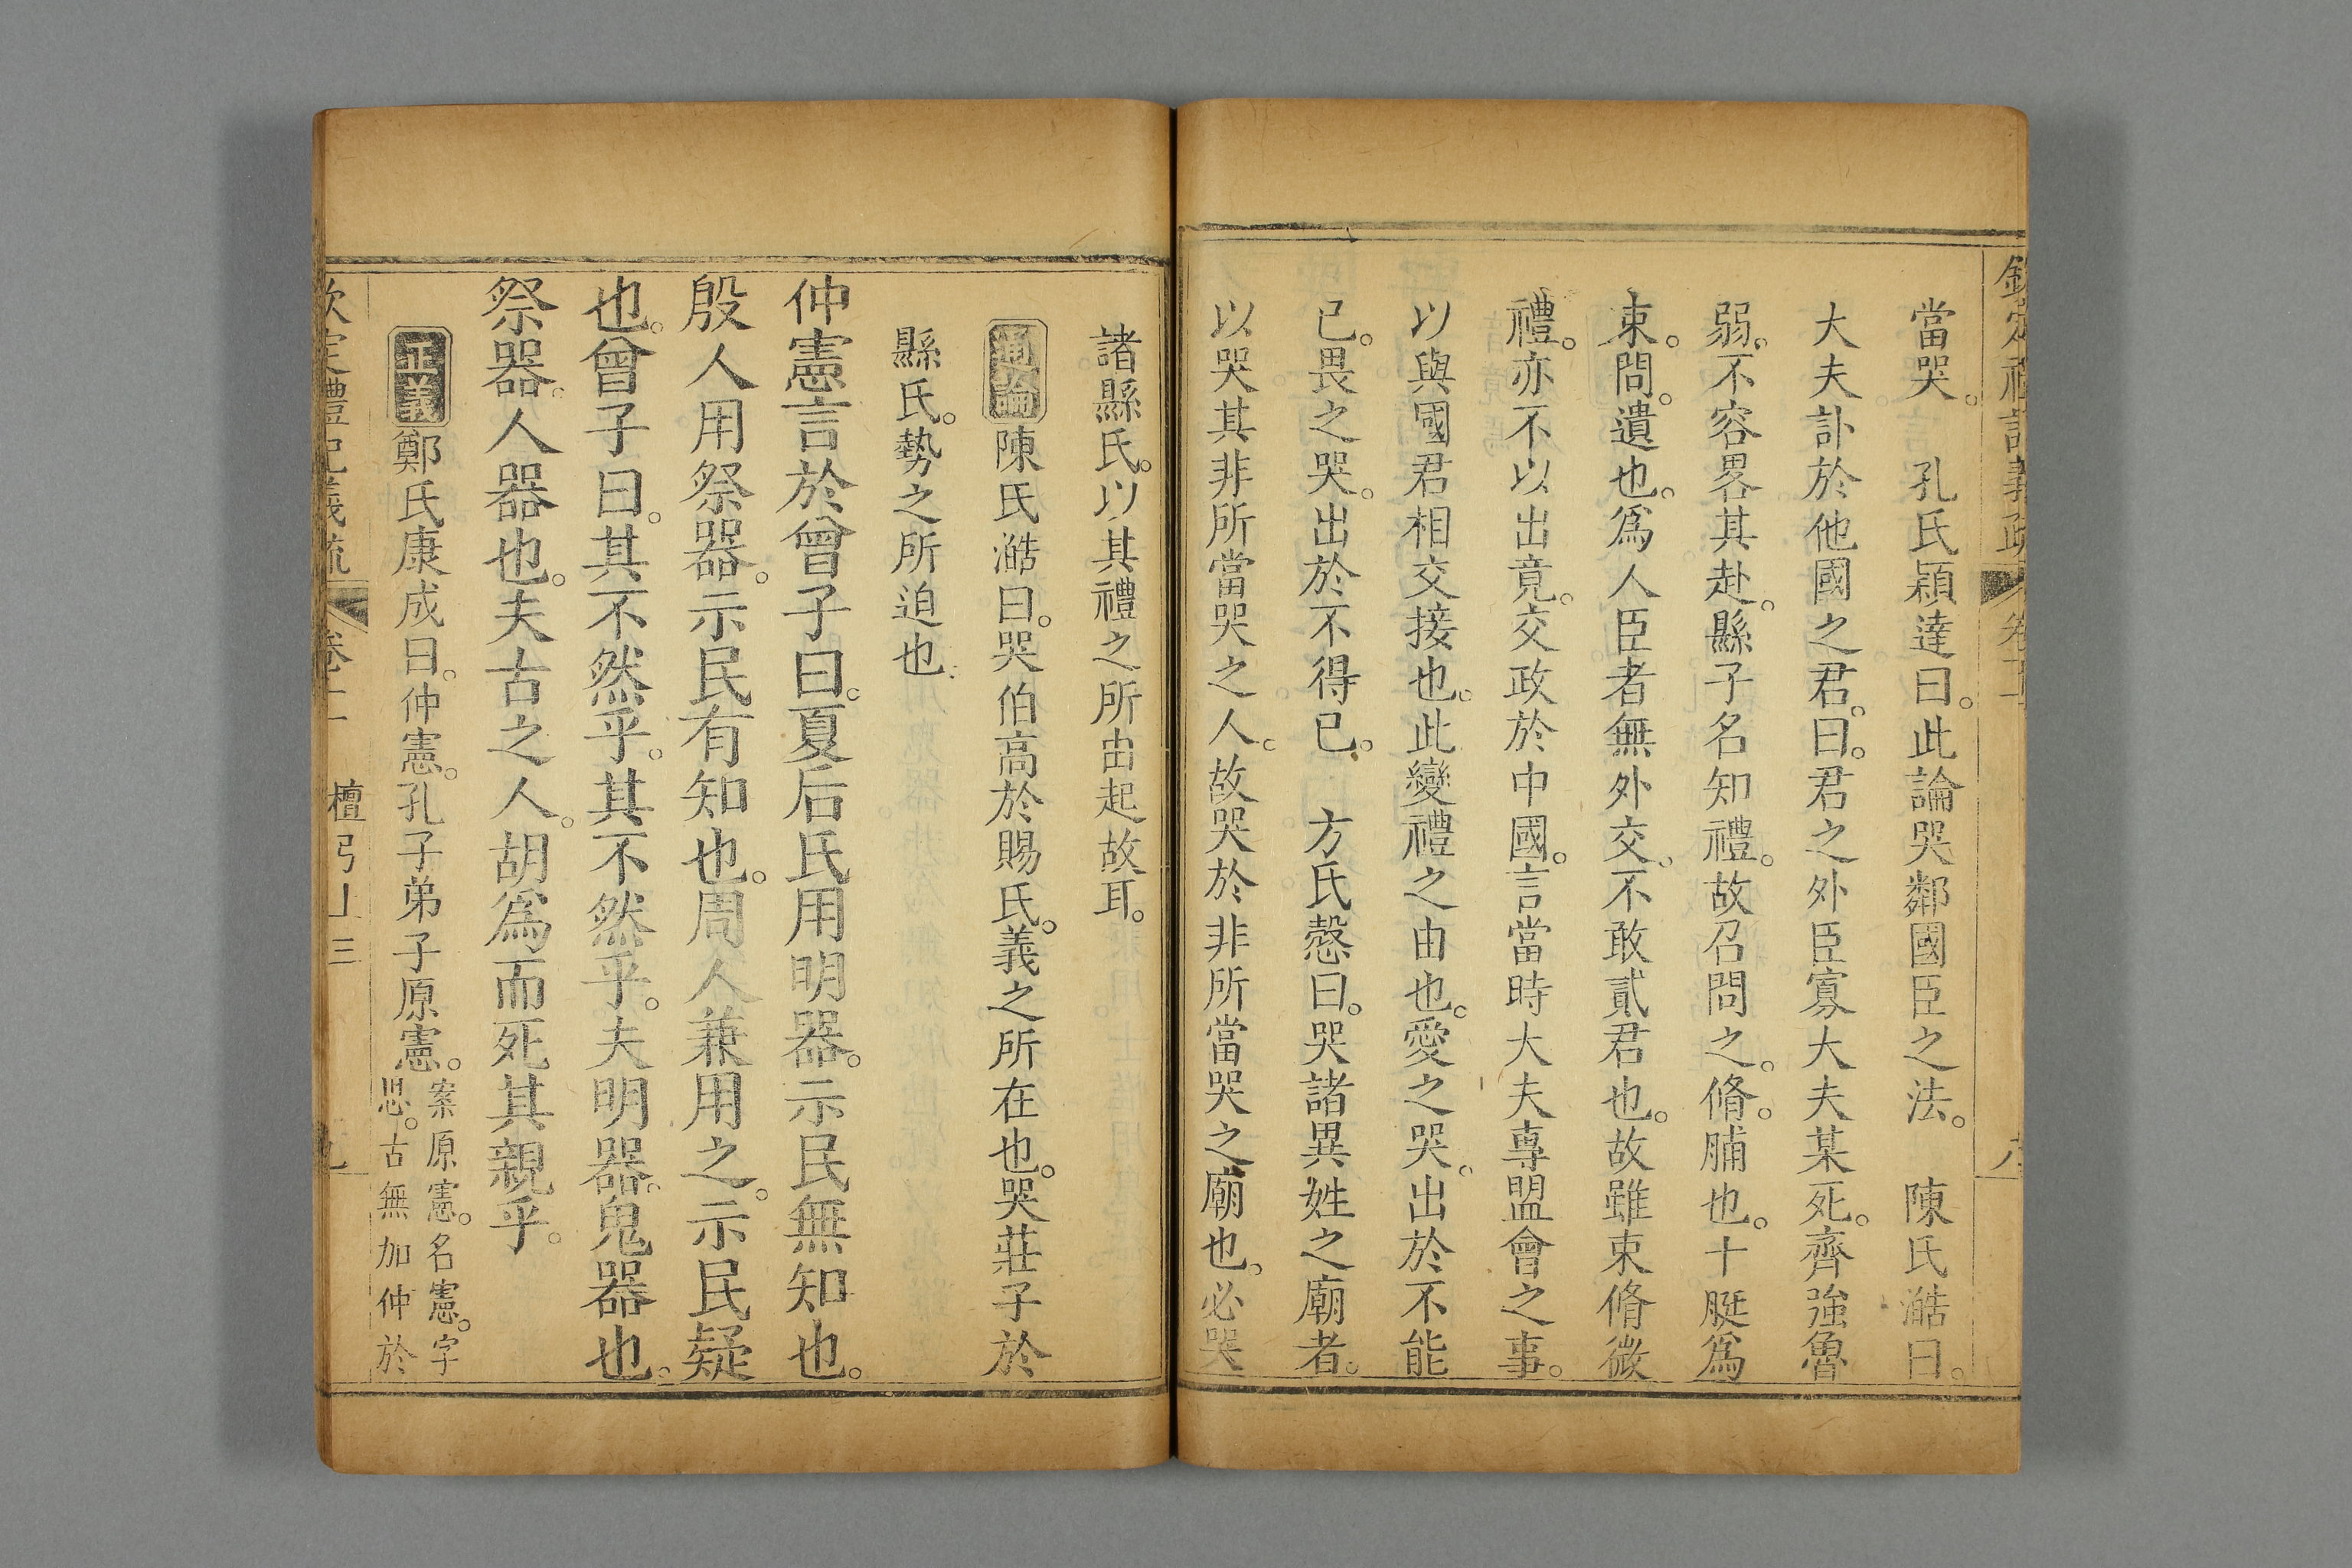 當哭。　孔氏穎達曰。此論哭鄰國臣之法。　陳氏澔曰。
大夫訃於他國之君。曰。君之外臣寡大夫某死。齊強魯
弱。不容畧其赴。縣子名知禮。故召問之。脩。脯也。十脡爲
束。問。遺也。爲人臣者無外交。不敢貳君也。故雖束脩微
禮。亦不以出竟。交政於中國。言當時大夫專盟會之事。
以與國君相交接也。此變禮之由也。愛之哭。出於不能
已。畏之哭。出於不得已。　方氏慤曰。哭諸異姓之廟者。
以哭其非所當哭之人。故哭於非所當哭之廟也。必哭
諸縣氏。以其禮之所由起故耳。
通論陳氏澔曰。哭伯高於賜氏。義之所在也。哭莊子於
縣氏。勢之所迫也。
仲憲言於曾子曰。夏后氏用明器。示民無知也。
殷人用祭器。示民有知也。周人兼用之。示民疑
也。曾子曰。其不然乎。其不然乎。夫明器。鬼器也。
祭器。人器也。夫古之人。胡爲而死其親乎。
正義鄭氏康成曰。仲憲。孔子弟子原憲。案原憲。名憲。字
思。古無加仲於
檀弓上三